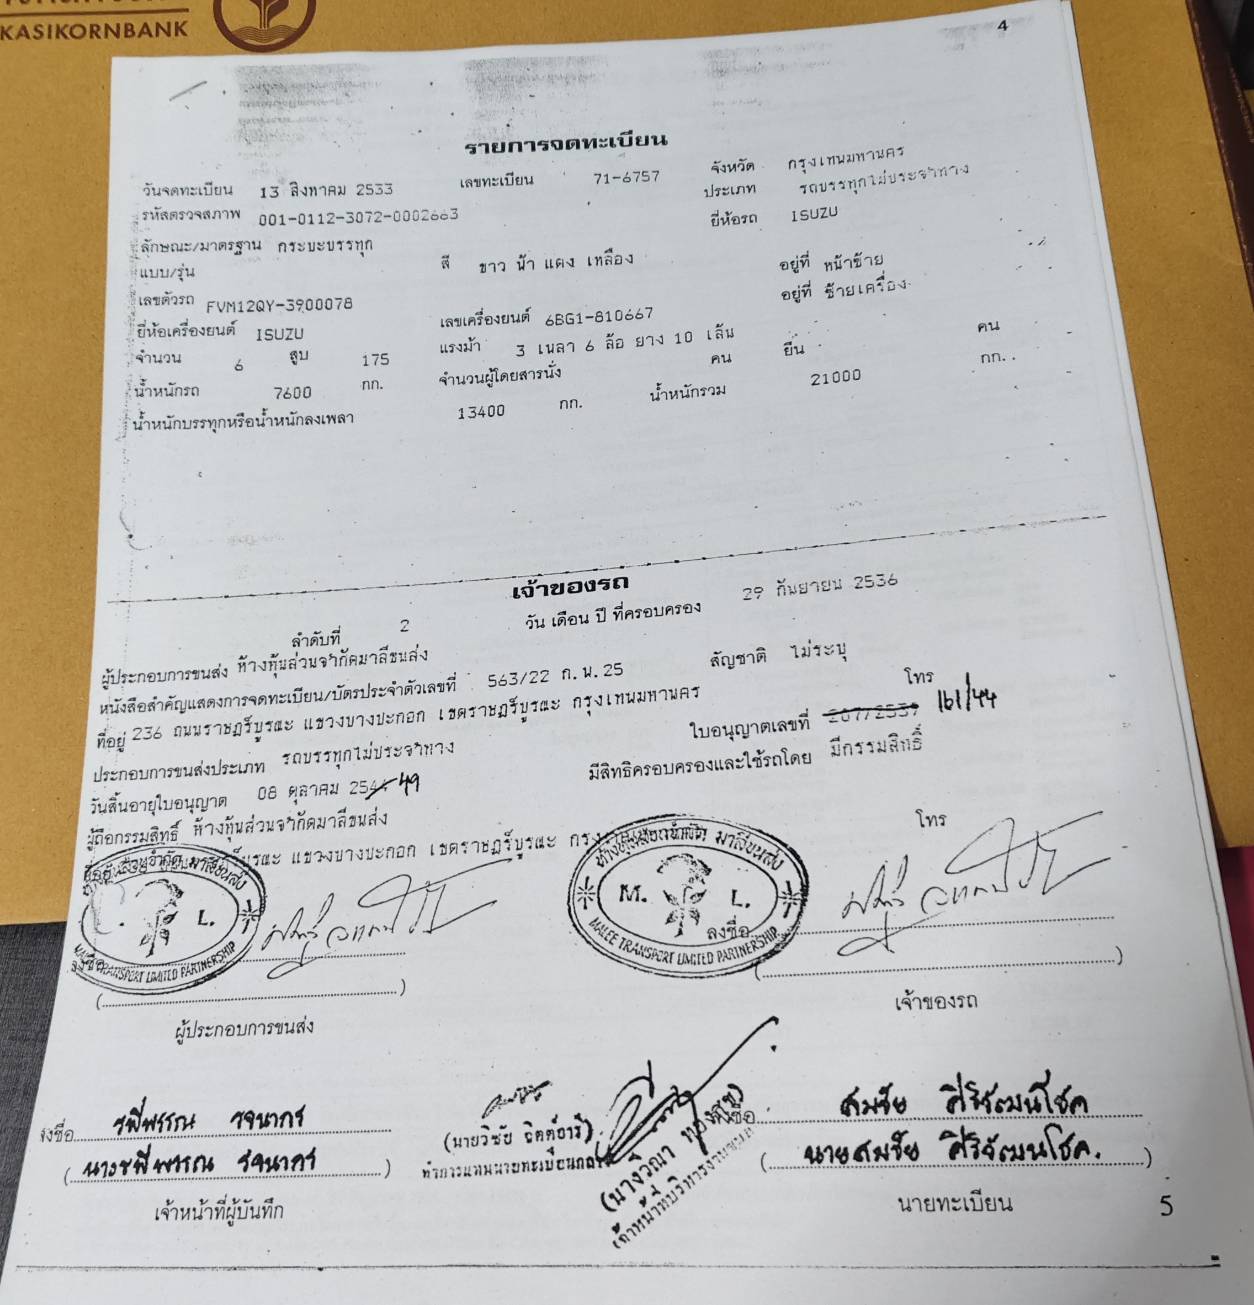 KASIKORNBANK
4
รายการจดทะเบียน
วันจดทะเบียน 13 สิงหาคม 2533 เลขทะเบียน 71-6757 จังหวัด กรุงเทพมหานคร
รหัสตรวจสภาพ 001-0112-3072-0002663 ประเภท รถบรรทุกไม่ประจำทาง
ลักษณะ/มาตรฐาน กระบะบรรทุก ยี่ห้อรถ ISUZU
แบบ/รุ่น สี ขาว น้ำ แดง เหลือง
เลขตัวรถ FVM12QY-3900078 อยู่ที่ หน้าซ้าย
ยี่ห้อเครื่องยนต์ ISUZU เลขเครื่องยนต์ 6BG1-810667 อยู่ที่ ซ้ายเครื่อง
จำนวน 6 สูบ 175 แรงม้า 3 เพลา 6 ล้อ ยาง 10 เส้น
น้ำหนักรถ 7600 กก. จำนวนผู้โดยสารนั่ง คน ยืน คน
น้ำหนักบรรทุกหรือน้ำหนักลงเพลา 13400 กก. น้ำหนักรวม 21000 กก.
เจ้าของรถ
ลำดับที่ 2 วัน เดือน ปี ที่ครอบครอง 29 กันยายน 2536
ผู้ประกอบการขนส่ง ห้างหุ้นส่วนจำกัดมาลีขนส่ง
หนังสือสำคัญแสดงการจดทะเบียน/บัตรประจำตัวเลขที่ 563/22 ก.พ.25 สัญชาติ ไม่ระบุ
ที่อยู่ 236 ถนนราษฎร์บูรณะ แขวงบางปะกอก เขตราษฎร์บูรณะ กรุงเทพมหานคร โทร
ประกอบการขนส่งประเภท รถบรรทุกไม่ประจำทาง ใบอนุญาตเลขที่ 161/44
วันสิ้นอายุใบอนุญาต 08 ตุลาคม 49 มีสิทธิครอบครองและใช้รถโดย มีกรรมสิทธิ์
ผู้ถือกรรมสิทธิ์ ห้างหุ้นส่วนจำกัดมาลีขนส่ง
แขวงบางปะกอก เขตราษฎร์บูรณะ โทร
ห้างหุ้นส่วนจำกัด มาลีขนส่ง
L.
MALEE TRANSPORT LIMITED PARTNERSHIP
ห้างหุ้นส่วนจำกัด มาลีขนส่ง
M. L.
MALEE TRANSPORT LIMITED PARTNERSHIP
ลงชื่อ
ผู้ประกอบการขนส่ง เจ้าของรถ
ลงชื่อ รพีพรรณ รจนากร
(นางรพีพรรณ รจนากร)
เจ้าหน้าที่ผู้บันทึก
(นายวิชัย จิตต์อารี)
ทำการแทนนายทะเบียนกลาง
(นางวีณา ทองสุข)
เจ้าหน้าที่บริหารงานขนส่ง
ลงชื่อ สมชัย ศิริวัฒนโชค
(นายสมชัย ศิริวัฒนโชค.)
นายทะเบียน
5